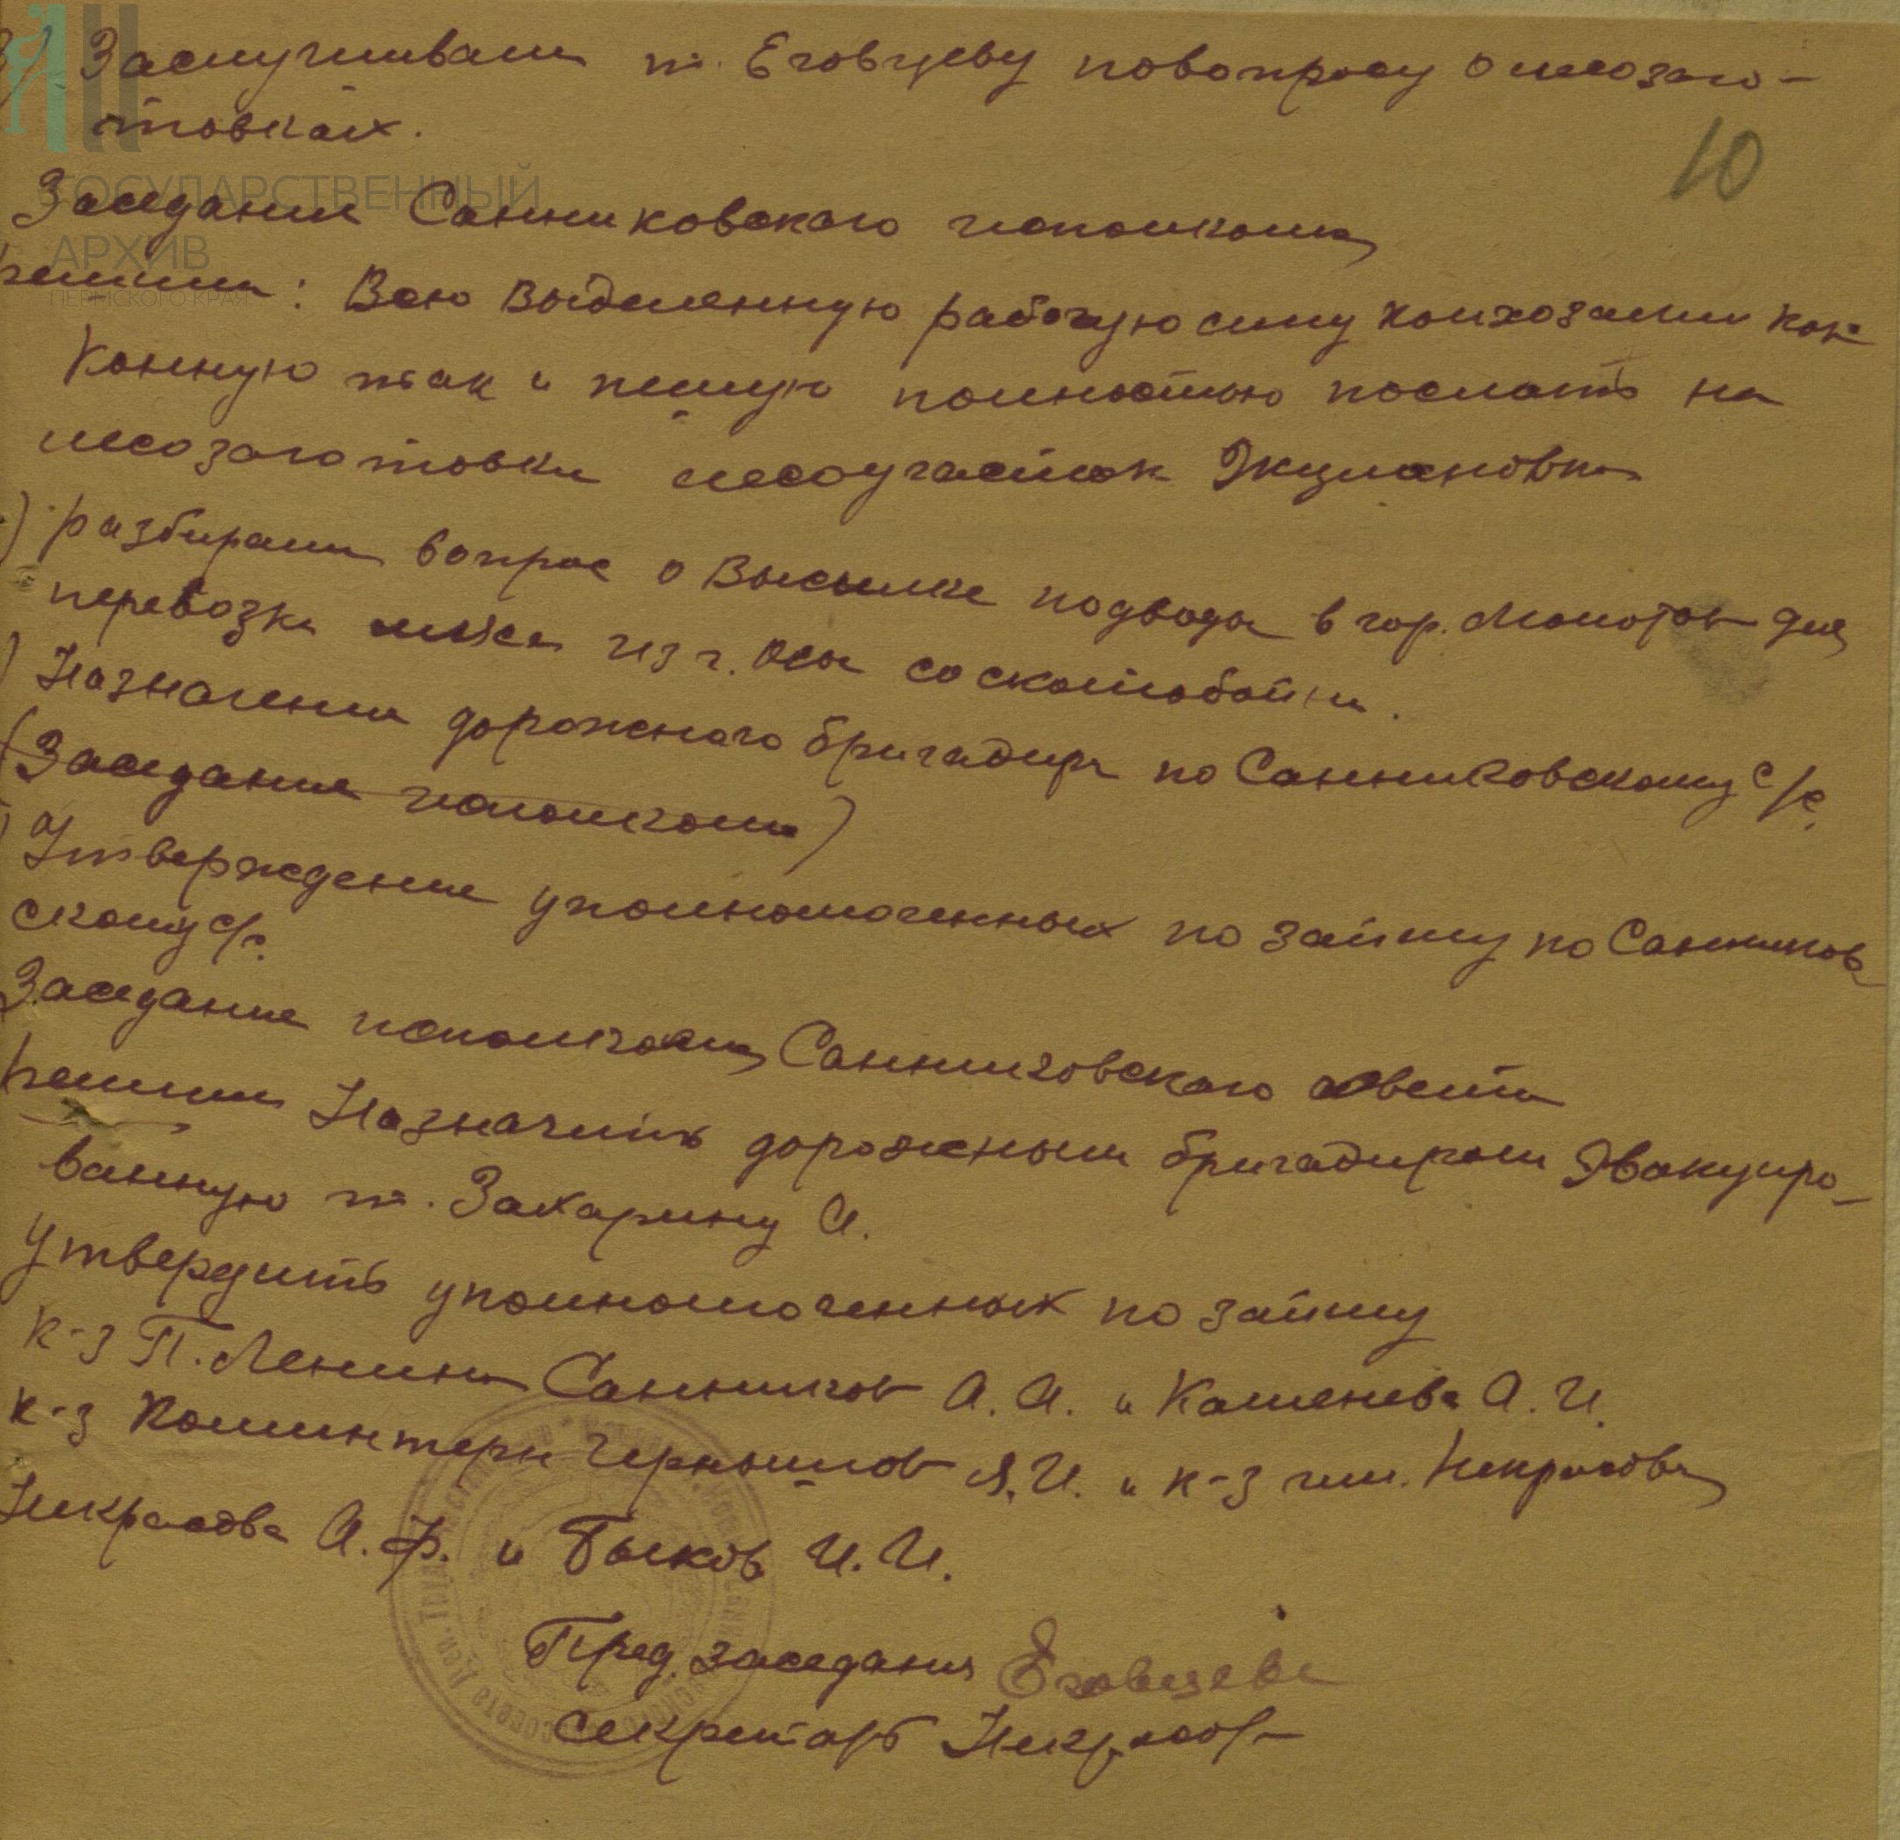 3) Заслушивали т. Еговцеву повопросу о лесозаго-
товках.
10
ГОСУДАРСТВЕННЫЙ
АРХИВ
ПЕРМСКОГО КРАЯ
Заседание Санниковского исполкома
решили: Всю выделенную рабочую силу колхозами как
конную так и пешую полностью послать на
лесозаготовки лесоучасток
) разбирали вопрос о высылке подводы в гор. Молотов для
перевозки из г. Осы со скотобойни.
) Назначение дорожного бригадира по Санниковскому с/с.
(Заседание исполкома)
) Утверждение уполномоченных по займу по Санников
скому с/с.
Заседание исполкома Санниковского совета
решили Назначить дорожным бригадиром Эвакуиро-
ванную т. Захарину А.
Утвердить уполномоченных по займу
к-з П. Ленина Санников А. А. и Каменева А. И.
к-з Коминтерн Чернышов Я. И. и к-з им. Некрасова
Некрасова А. Ф. и Быков И. И.
Пред. заседания Еговцева
секретарь Некрасова